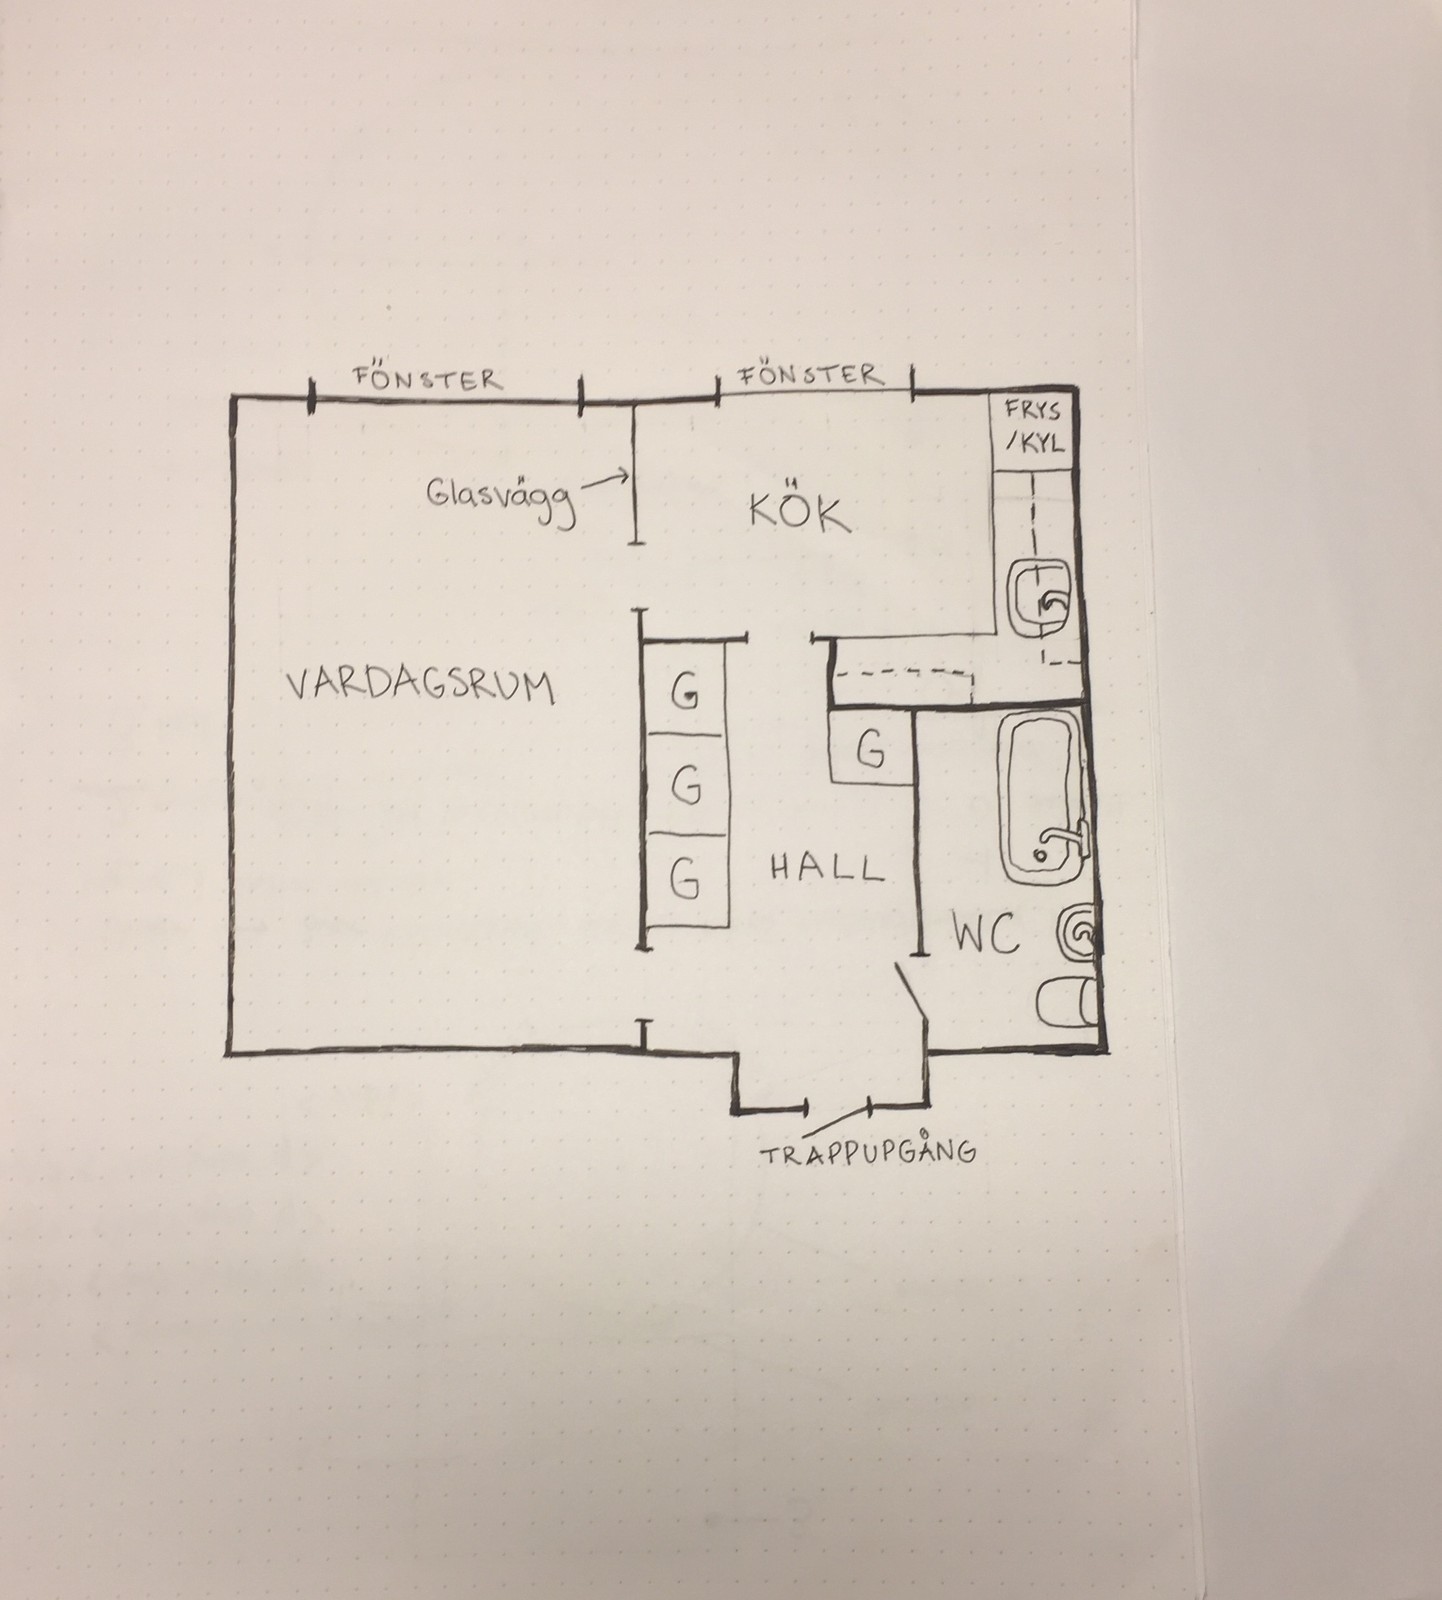 FÖNSTER
FÖNSTER
FRYS
/KYL
Glasvägg
KÖK
VARDAGSRUM
G
G
G
G
HALL
WC
TRAPPUPGÅNG